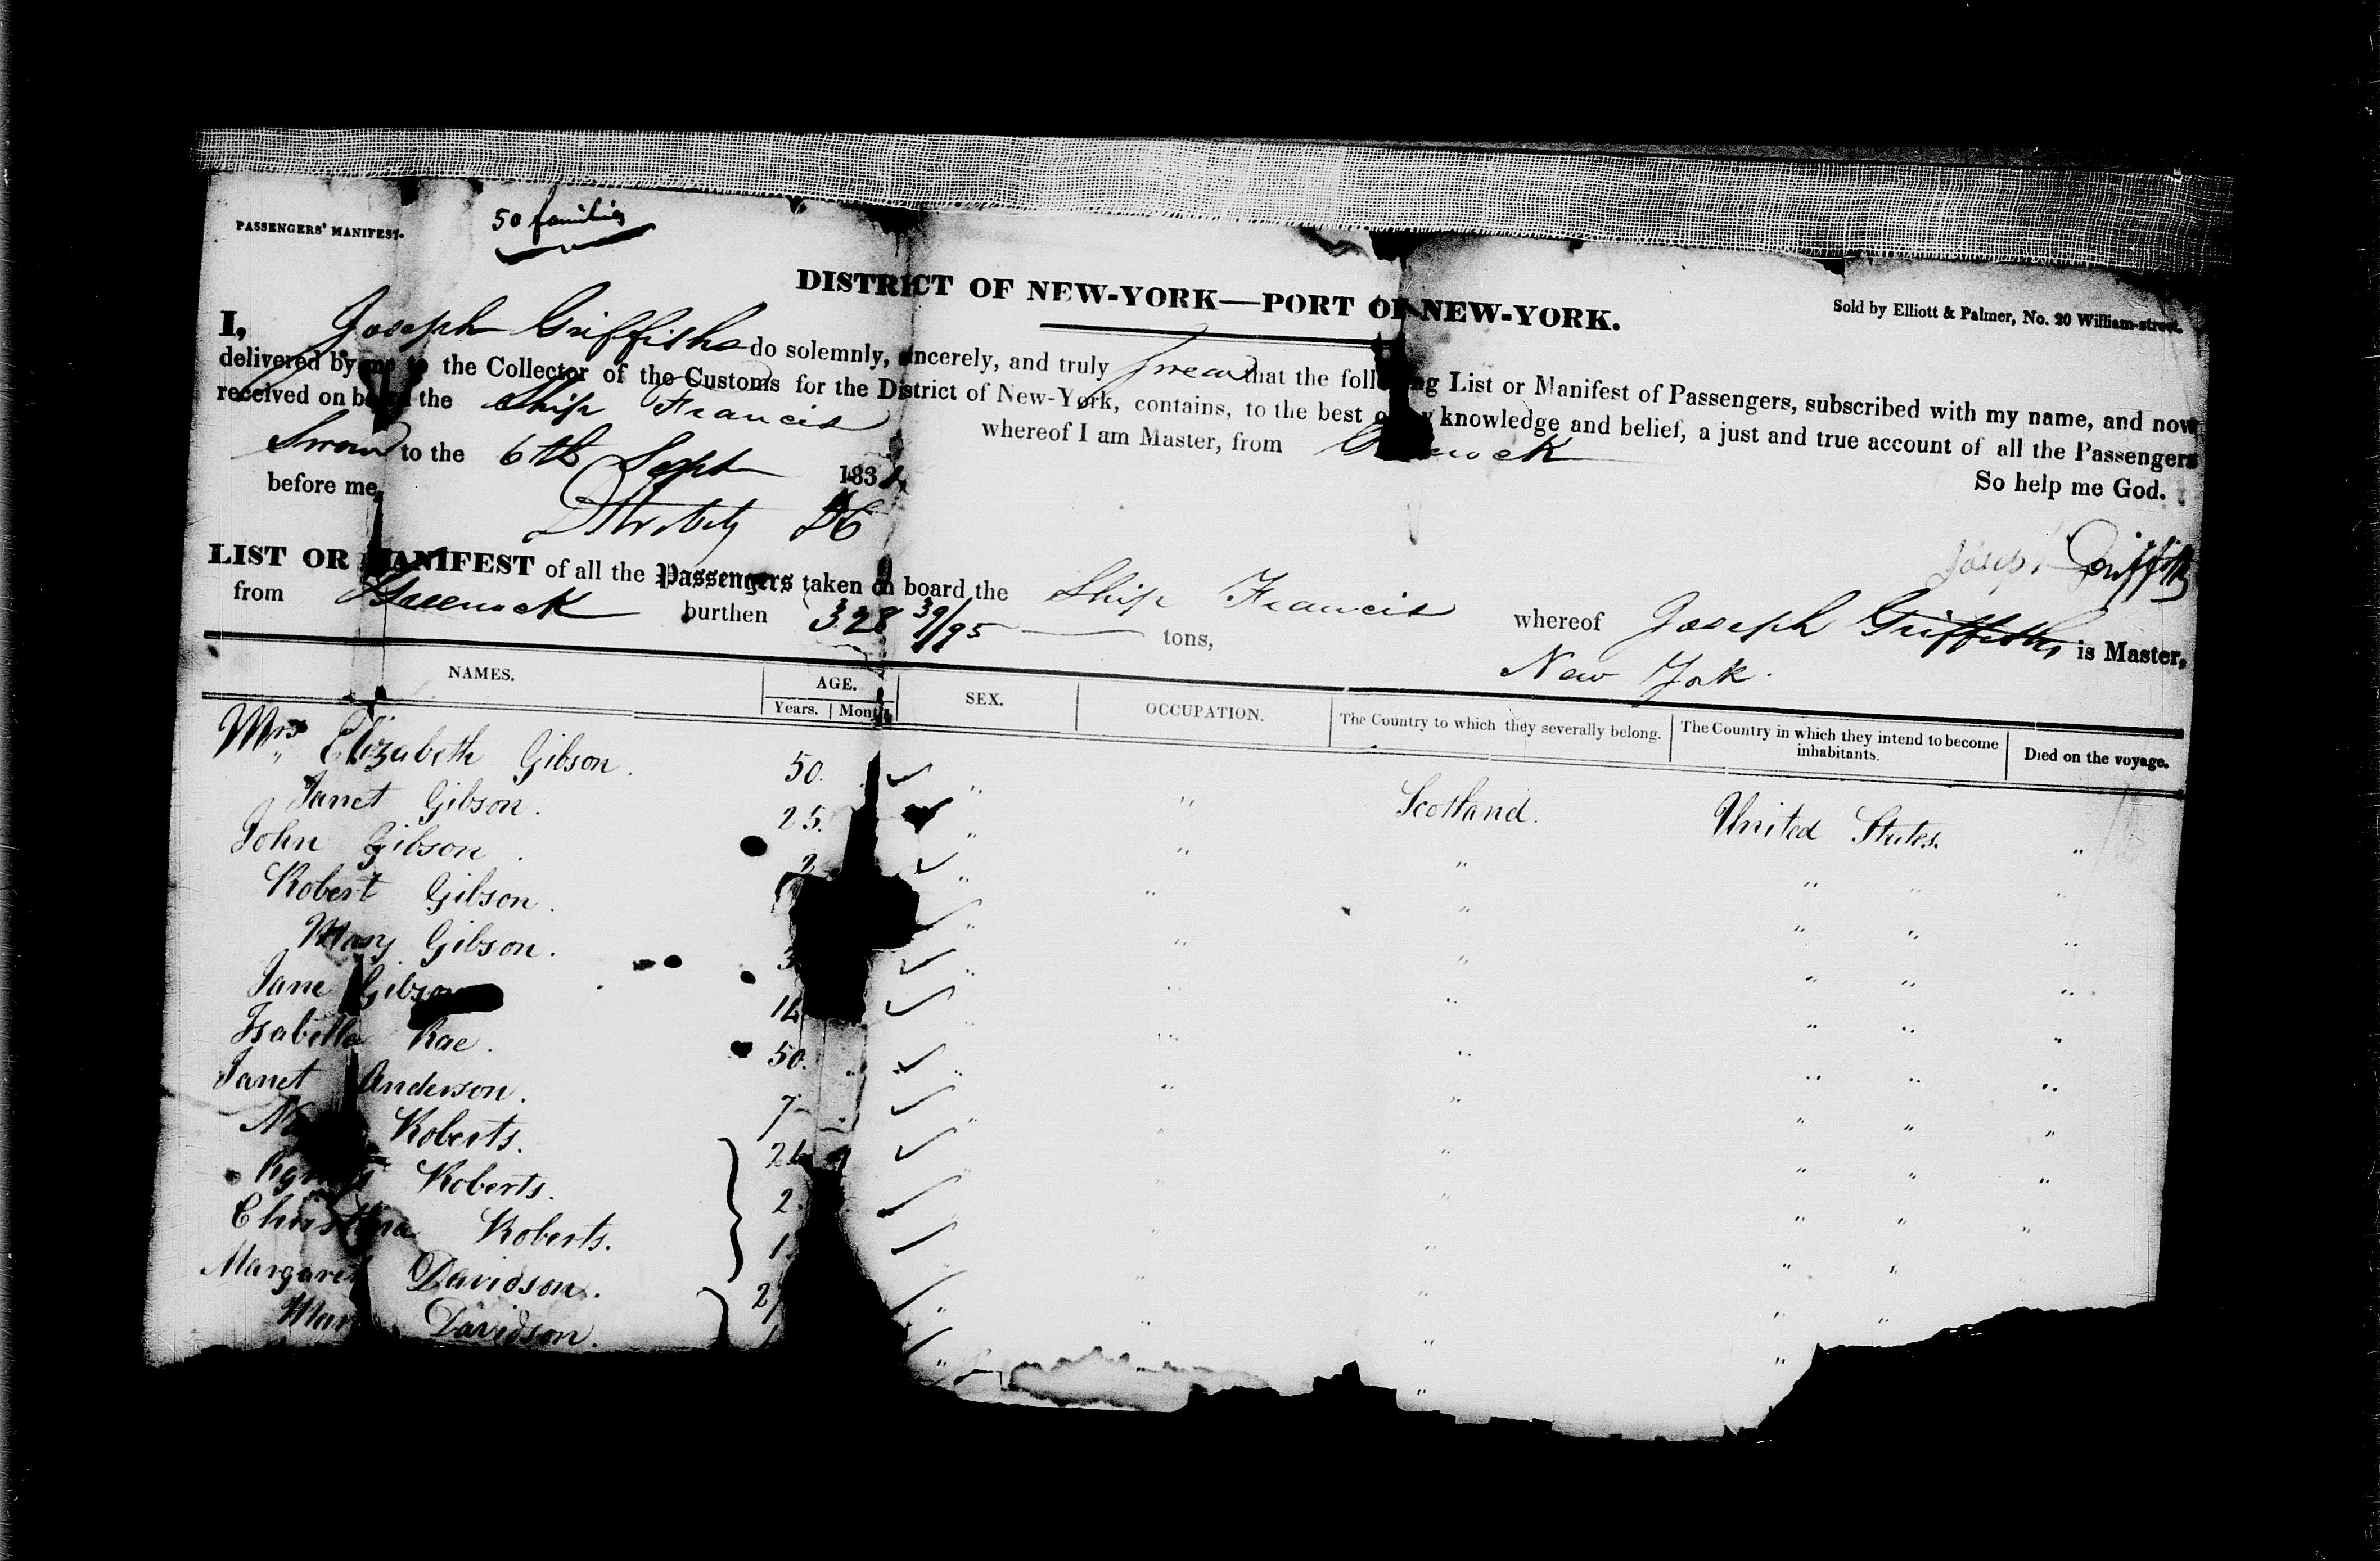 PASSENGERS' MANIFEST.
50 families
DISTRICT OF NEW-YORK—PORT OF NEW-YORK.
Sold by Elliott & Palmer, No. 20 William-street.
I, Joseph Griffiths do solemnly, sincerely, and truly swear that the following List or Manifest of Passengers, subscribed with my name, and now
delivered by me to the Collector of the Customs for the District of New-York, contains, to the best of my knowledge and belief, a just and true account of all the Passengers
received on board the Ship Francis whereof I am Master, from Greenock
Sworn to the 6th Sept 183
So help me God.
before me,
Joseph Griffiths
LIST OR MANIFEST of all the Passengers taken on board the Ship Francis whereof Joseph Griffiths is Master,
from Greenock burthen 328 39/95 tons, New York.
NAMES. AGE. SEX. OCCUPATION. The Country to which they severally belong. The Country in which they intend to become inhabitants. Died on the voyage.
Years. Months.
Mrs Elizabeth Gibson. 50. " " Scotland. United States. "
Janet Gibson. 25. " " " " " "
John Gibson. " " " " " "
Robert Gibson. " " " " " "
Mary Gibson. 3 " " " " " "
Jane Gibson 14 " " " " " "
Isabella Rae. 50. " " " " " "
Janet Anderson. 7 " " " " " "
Roberts. 24 " " " " " "
Agnes Roberts. 2. " " " " "
Christina Roberts. 1. " " " " "
Margaret Davidson. 27 " " " " "
Mary Davidson. 1 " " " "